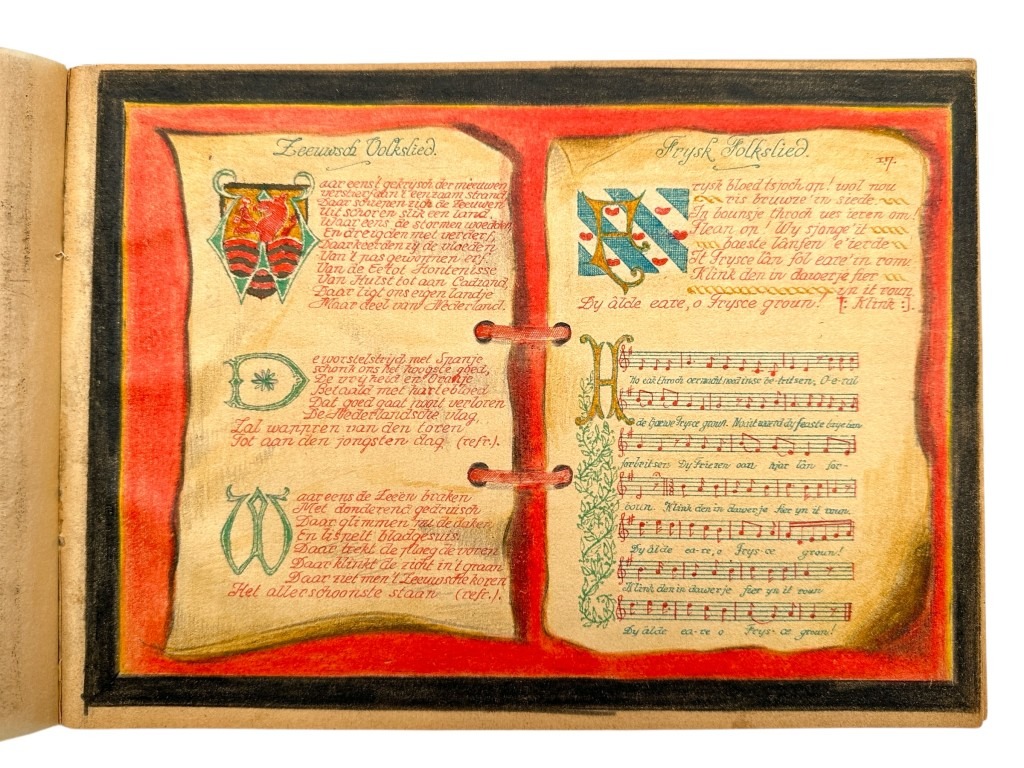 Zeeuwsch Volkslied.
Waar eens 't gekrysch der meeuwen
Verstierf aan 't eenzaam strand,
Daar schiepen zich de Zeeuwen
Uit schor en slik een land,
Waar eens de stormen woedden
En dreigden met verderf,
Daar keerden zy de vloeden
Van 't pas gewonnen erf.
Van de Ee tot Hontenisse
Van Hulst tot aan Cadzand,
Daar ligt ons eigen landje
Maar deel van Nederland.
De worstelstrijd met Spanje
schonk ons het hoogste goed,
De vrijheid en Oranje
Betaald met hartebloed
Dat goed gaat nooit verloren
De Nederlandsche vlag,
Zal wappren van den toren
Tot aan den jongsten dag. (refr.).
Waar eens de Zeeën braken
Met donderend gedruisch
Daar glimmen nu de daken
En lispelt bladgesuis.
Daar trekt de ploeg de voren
Daar klinkt de zicht in 't graan
Daar ziet men 't Zeeuwsche koren
Het allerschoonste staan (refr.).
Frysk Folkslied.
Frysk bloed tsjoch op! wol nou
ris brûwze' in siede.
In bounsje throch ues ieren om!
Flean op! Wy sjonge 'it
baeste lânfen 'e ierde
It Frysce lân fol eare' in rom.
Klink den in dawerje fier
yn it roun
Dy âlde eare, o Frysce groun! [: Klink :].
Ho eak throch oermacht need in see be-tritsen, O-e-ral
de Frysce groun. Nooit waerd dy feaste
forbritsen Dy Friezen oan hjar lân for-
boun. Klink den in dawerje fier yn it roun.
Dy âlde ea-re, o Frys-ce groun!
Klink den in dawerje fier yn it roun
Dy âlde ea-re o Frys-ce groun!